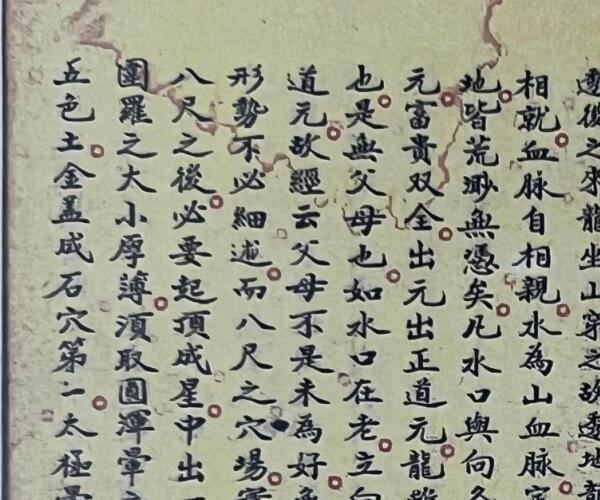 透後之來龍坐山穿之故透地龍
相就血脉自相親水為山血脉
地皆荒渺無憑矣凡水口與向
元富貴双全出元出正道元龍
也是無父母也如水口在老立向
道元故經云父母不是未為好
形勢不必細述而八尺之穴場
八尺之後必要起頂成星中出
圍羅之大小厚薄須取圓渾暈
五色土金盖成石穴第一太極暈